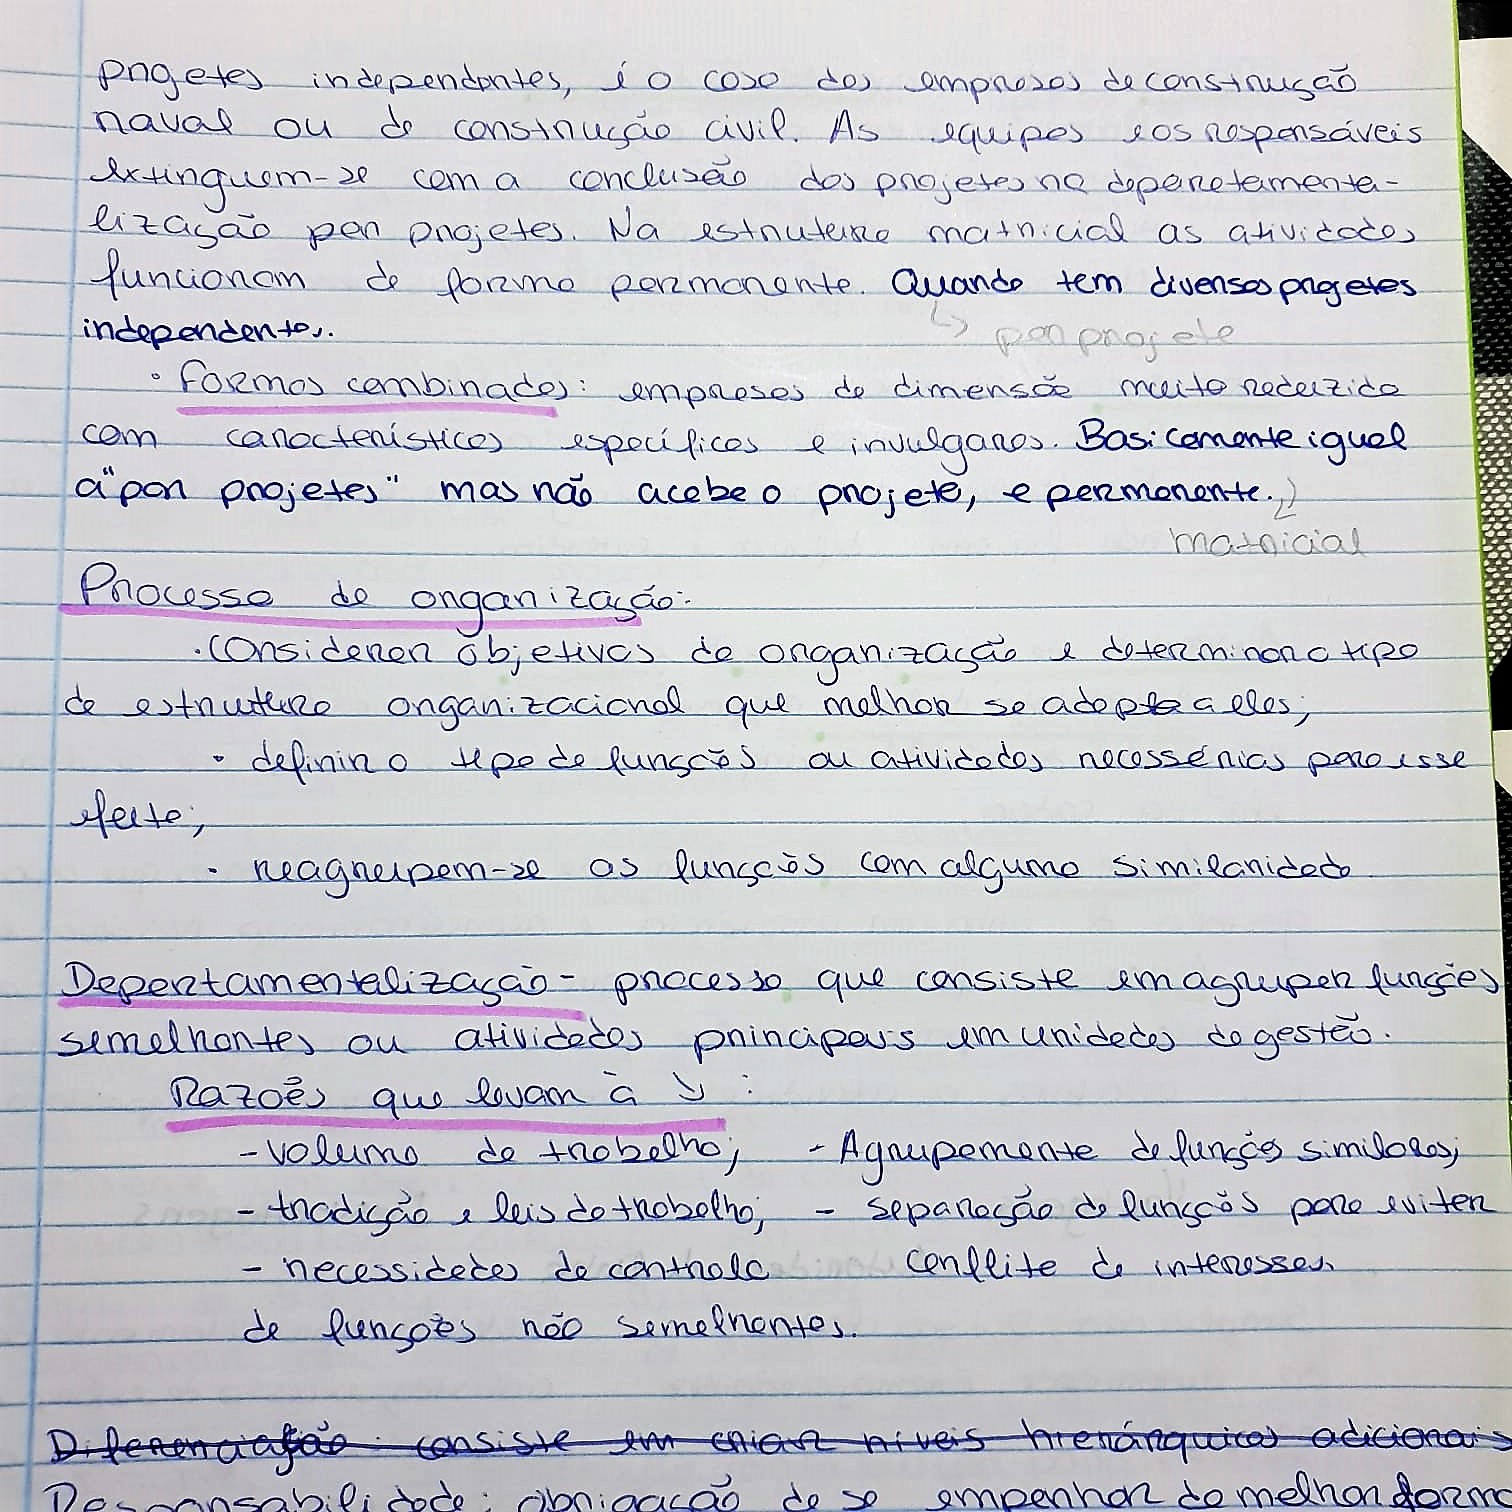 projetos independentes, é o caso das empresas de construção
naval ou de construção civil. As equipas e os responsáveis
extinguem-se com a conclusão dos projetos na departamenta-
lização por projetos. Na estrutura matricial as atividades
funcionam de forma permanente. Quando tem diversos projetos
independentes.
↳ por projeto
• Formas combinadas: empresas de dimensão muito reduzida
com características específicas e invulgares. Basicamente igual
à "por projetos" mas não acaba o projeto, é permanente.
matricial
Processo de organização:
• Considerar objetivos de organização e determinar o tipo
de estrutura organizacional que melhor se adapta a eles;
• definir o tipo de funções ou atividades necessárias para esse
efeito;
• reagrupem-se as funções com alguma similaridade
Departamentalização - processo que consiste em agrupar funções
semelhantes ou atividades principais em unidades de gestão.
Razões que levam à ↘ :
- volume de trabalho; - Agrupamento de funções similares;
- tradição e leis do trabalho; - separação de funções para evitar
- necessidades de controlo conflito de interesses.
de funções não semelhantes.
Diferenciação: consiste em criar níveis hierárquicos adicionais
Responsabilidade: obrigação de se empenhar da melhor forma